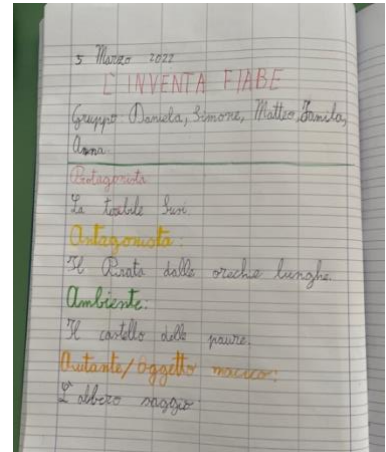 5 Marzo 2022
L'INVENTA FIABE
Gruppo: Daniela, Simone, Matteo, Jamila,
Anna.
Protagonista
La Susi.
Antagonista:
Il Pirata dalle oreche lunghe.
Ambiente:
Il castello delle paure.
Aiutante/Oggetto macico:
L'albero saggio.